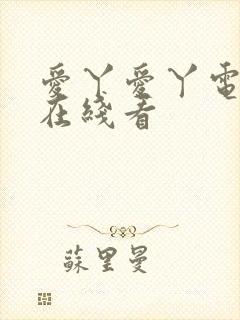 愛丫愛丫電
在綫看
蘇里曼